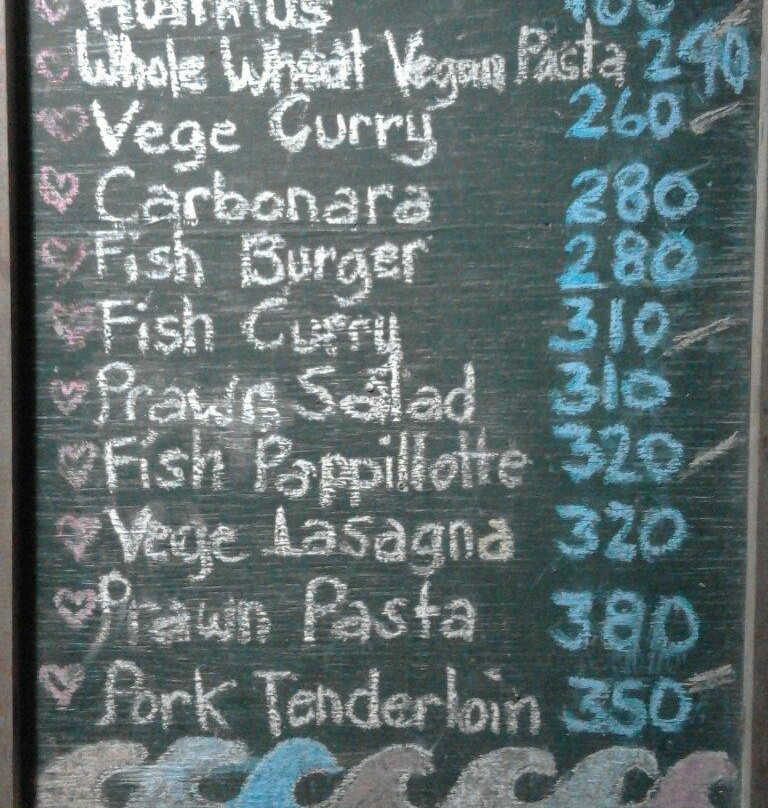 Whole Wheat Vegan Pasta 290
Vege Curry 260
Carbonara 280
Fish Burger 280
Fish Curry 310
Prawn Salad 310
Fish Pappillotte 320
Vege Lasagna 320
Prawn Pasta 380
Pork Tenderloin 350